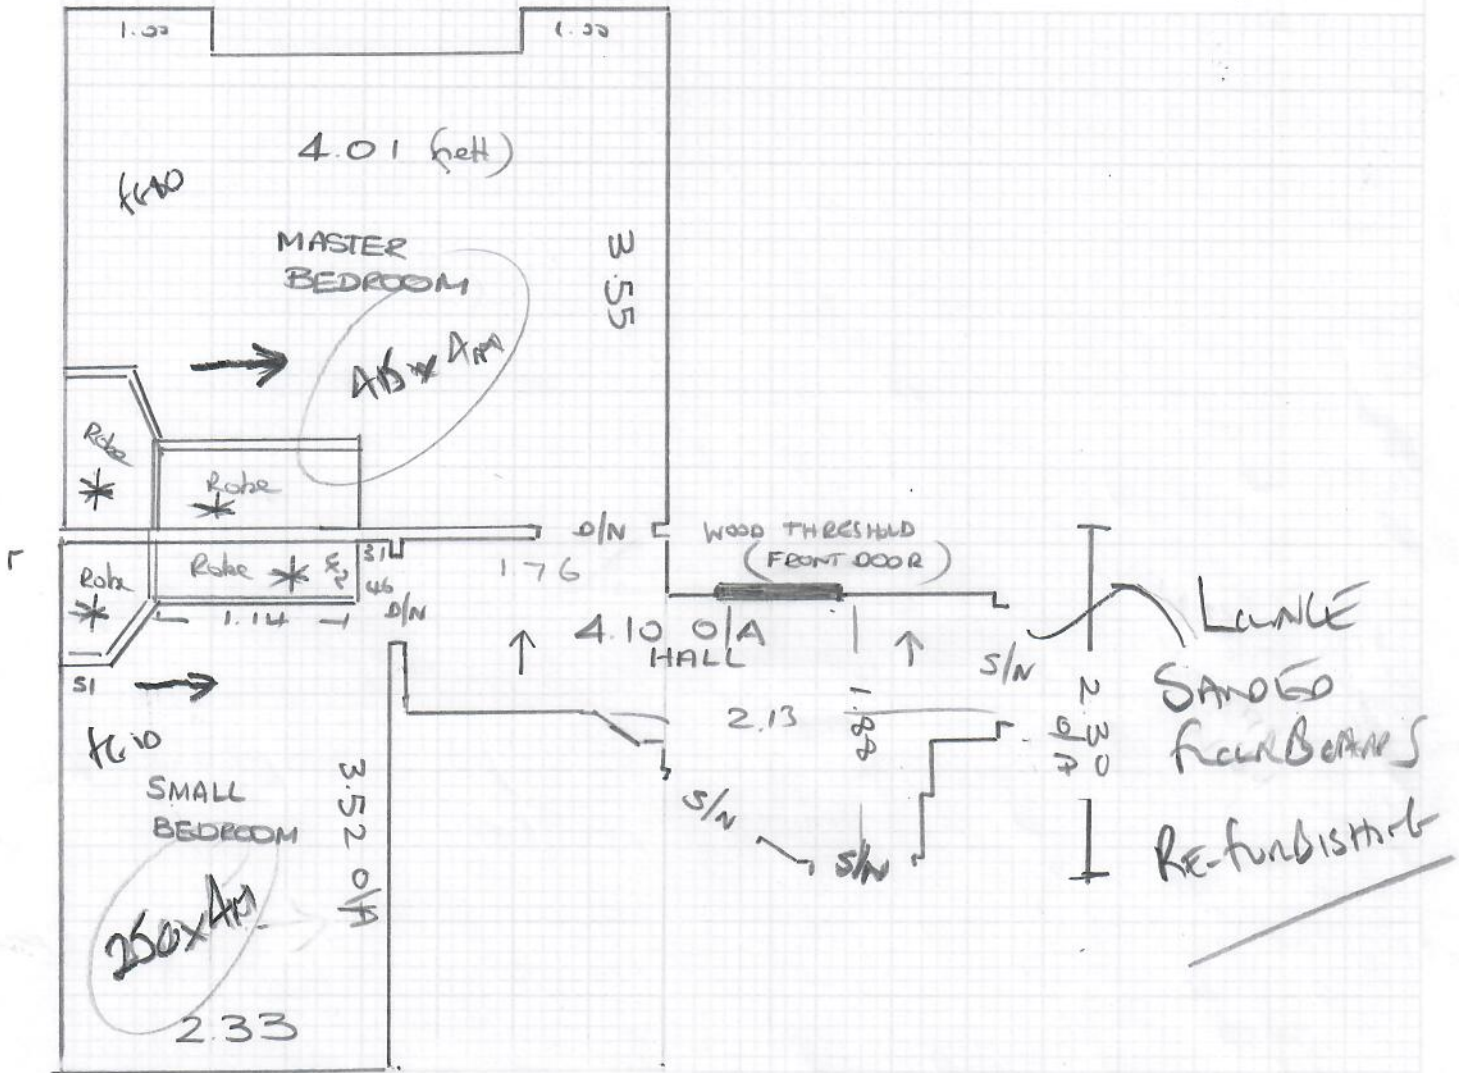 1.00
1.00
4.01 (nett)
MASTER
BEDROOM
3.55
415 x 4m
Robe
Robe
D/N
WOOD THRESHOLD
(FRONT DOOR)
Robe
Robe
31
46
1.76
1.14
D/N
4.10 O/A
HALL
S/N
LOUNGE
SANDED
FLOORBOARDS
RE-FURBISHING
51
2.13
1.88
2.30
O/A
SMALL
BEDROOM
3.52 O/A
S/N
S/N
250 x 4m
2.33